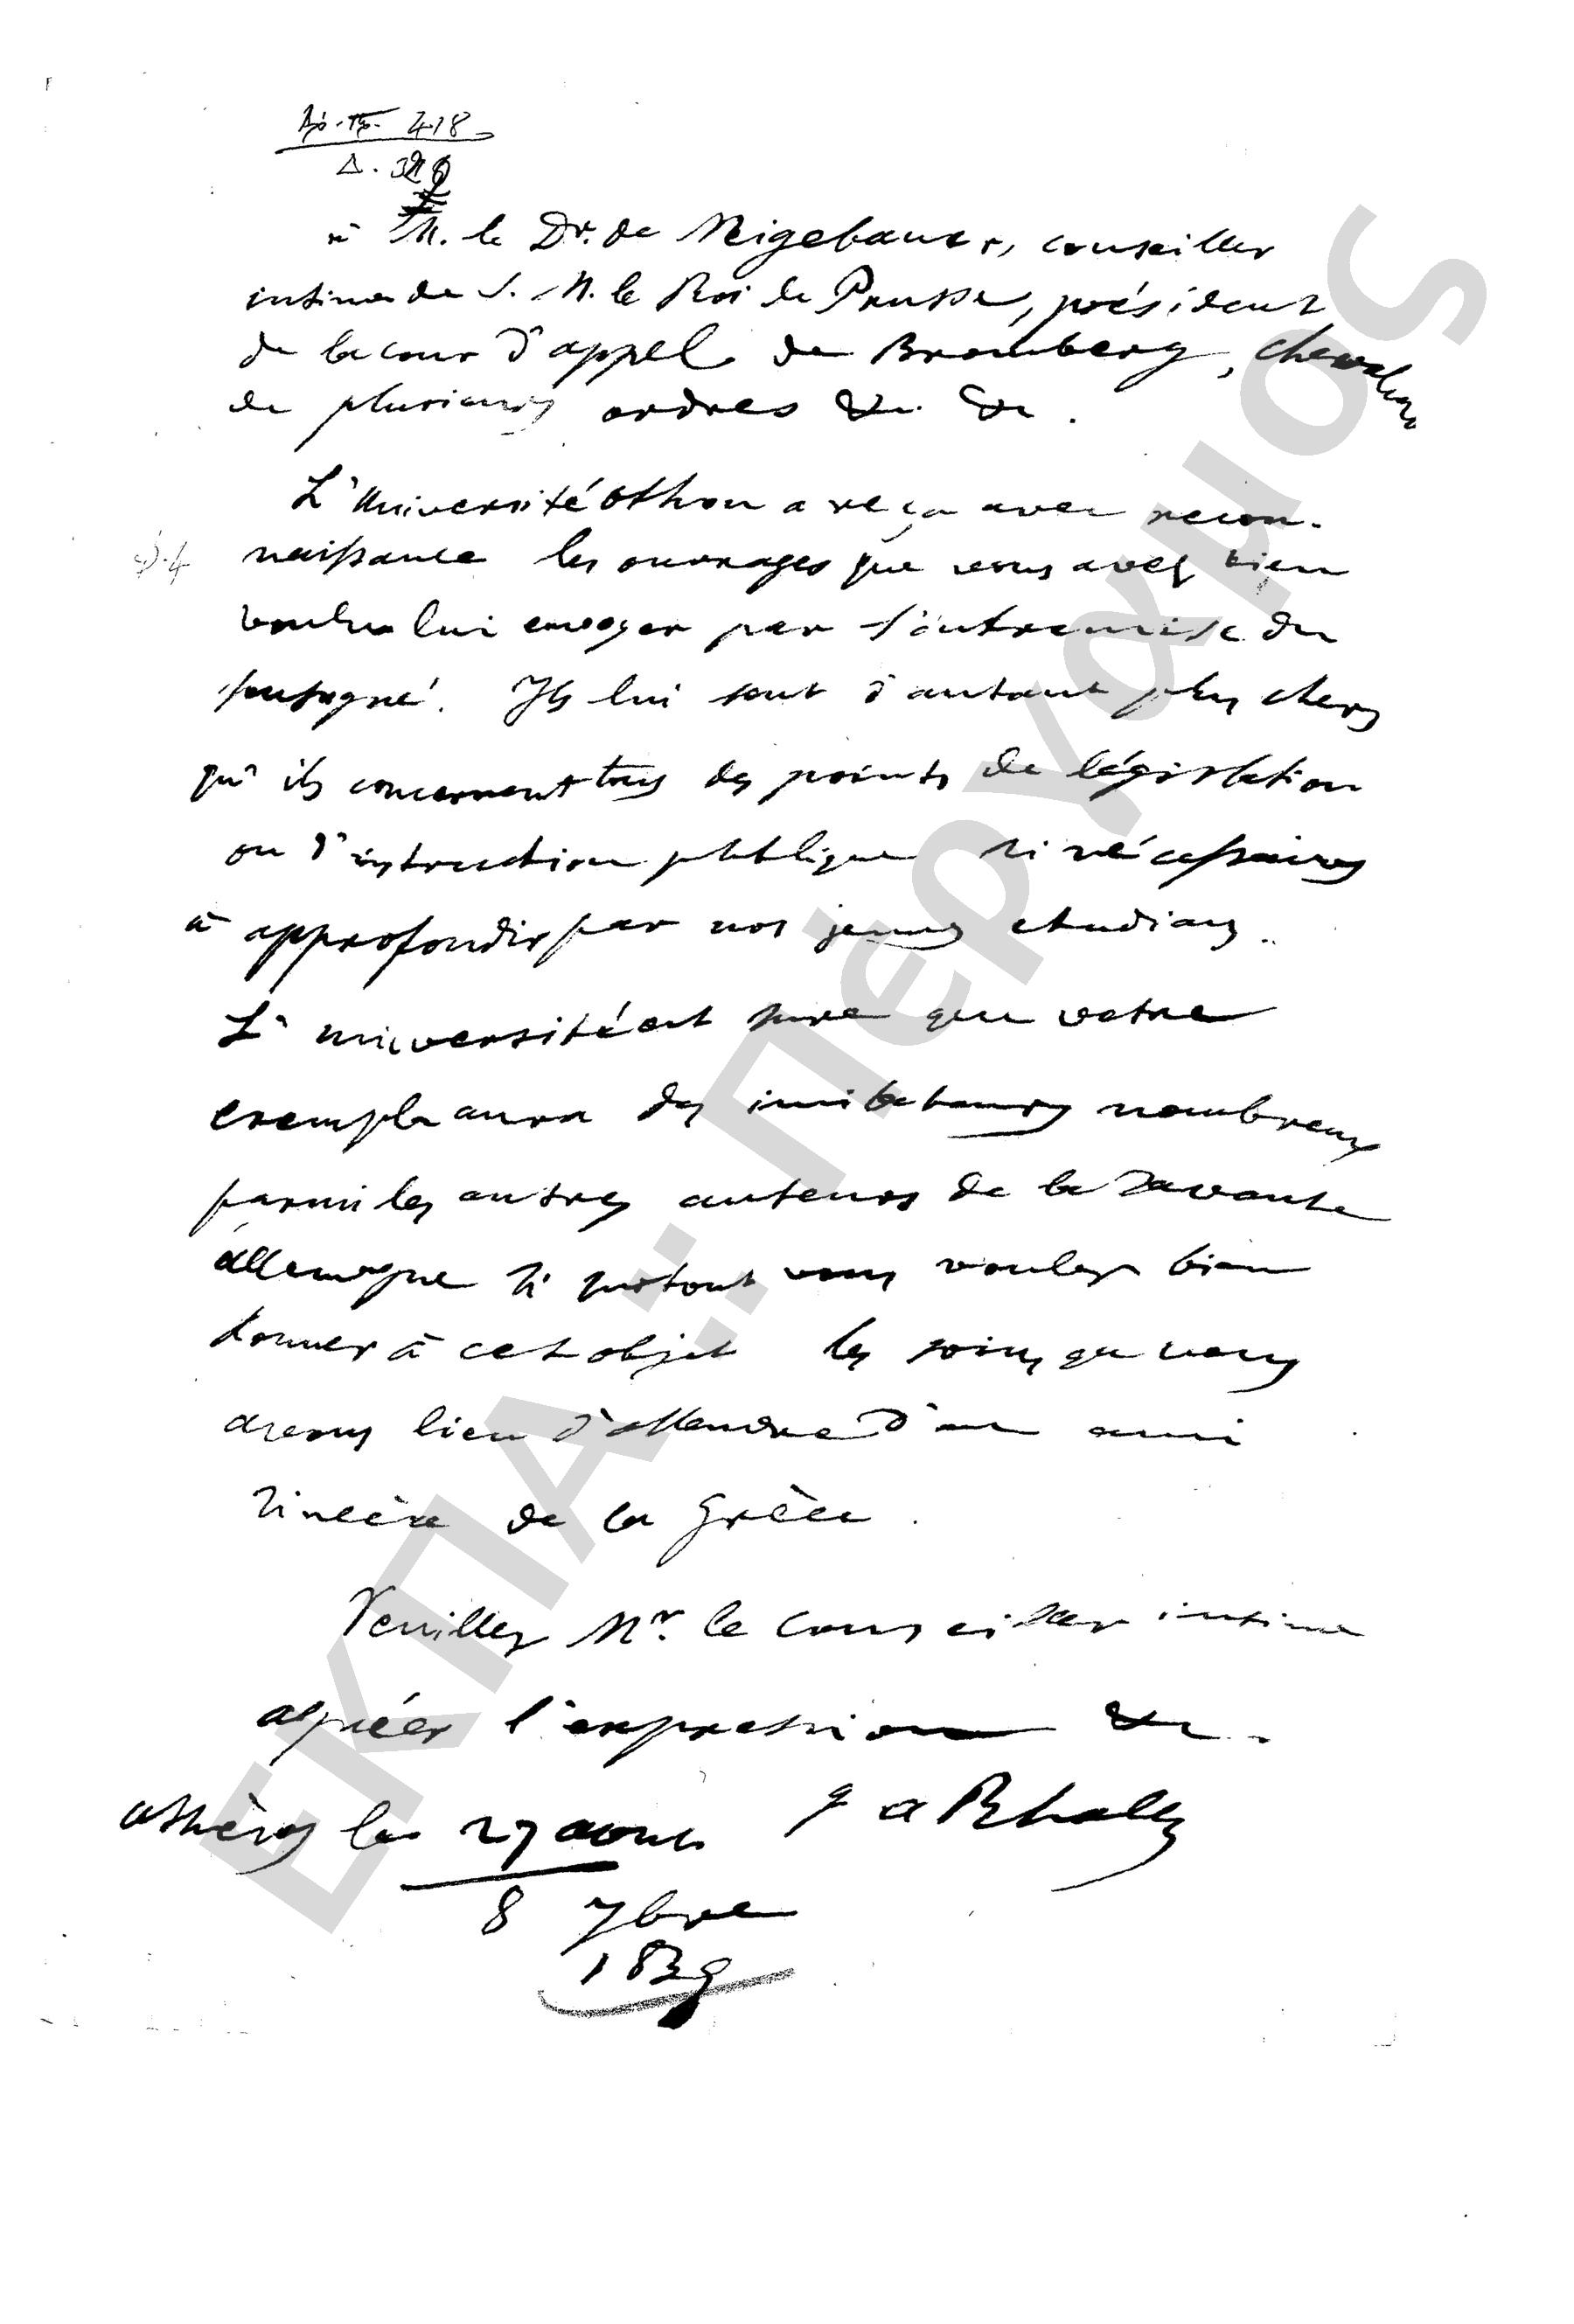 Ἀρ. Πρ. 418
Δ.
à M. le Dr. de Neigebauer, conseiller
intime de S. M. le Roi de Prusse, président
de la cour d'appel de Bromberg, chevalier
de plusieurs ordres &c. &c.
L'Université Othon a reçu avec recon-
naissance les ouvrages que vous avez bien
voulu lui envoyer par l'entremise du
sousigné. Ils lui sont d'autant plus chers
qu'ils concernent tous des points de législation
ou d'instruction publique si nécessaires
à approfondir par nos jeunes etudians.
L'université est sure que votre
exemple aura des imitateurs nombreux
parmi les autres auteurs de la savante
allemagne si surtout vous voulez bien
donner à cet objet les soins que nous
avons lieu d'attendre d'un ami
sincère de la Grèce.
Veuillez Mr. le conseiller intime
agréer l'expression &c.
athènes le 27 aout G a Rhally
8 7bre
1839
ΕΚΠΑ :: Πέργαμος